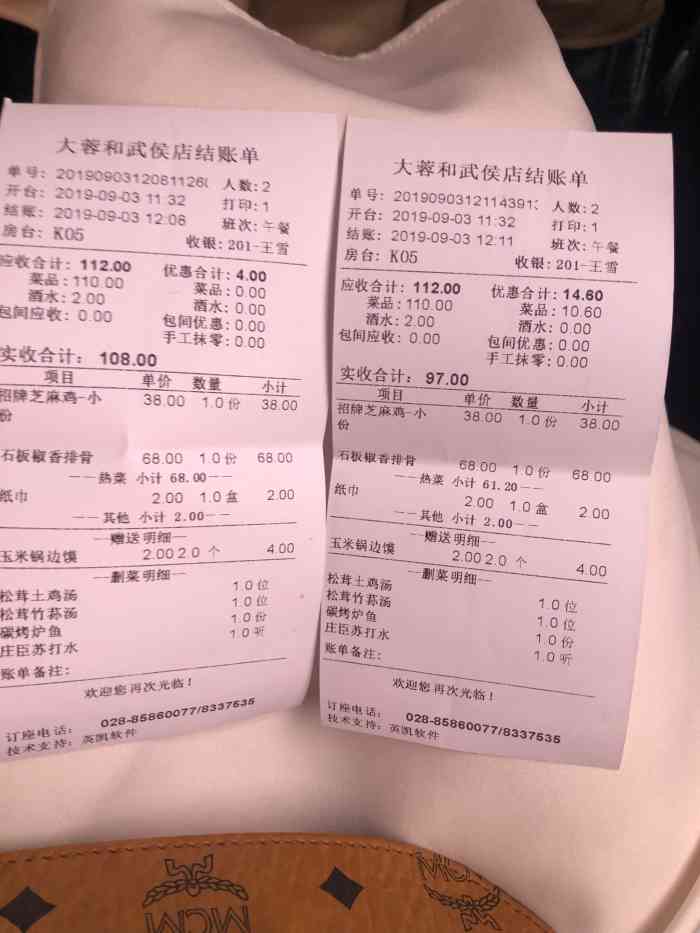 大蓉和武侯店结账单
单号: 2019090312081126 人数: 2
开台: 2019-09-03 11:32 打印: 1
结账: 2019-09-03 12:08 班次: 午餐
房台: K05 收银: 201-王雪
应收合计: 112.00 优惠合计: 4.00
菜品: 110.00 菜品: 0.00
酒水: 2.00 酒水: 0.00
包间应收: 0.00 包间优惠: 0.00
手工抹零: 0.00
实收合计: 108.00
项目 单价 数量 小计
招牌芝麻鸡-小 38.00 1.0 份 38.00
份
石板椒香排骨
68.00 1.0 份 68.00
——热菜 小计 68.00——
纸巾 2.00 1.0 盒 2.00
——其他 小计 2.00——
—赠送明细—
玉米锅边馍 2.00 2.0 个 4.00
—删菜明细—
松茸土鸡汤 1.0 位
松茸竹荪汤 1.0 位
碳烤炉鱼 1.0 份
庄臣苏打水 1.0 听
账单备注:
欢迎您再次光临!
订座电话: 028-85860077/8337535
技术支持: 英凯软件
大蓉和武侯店结账单
单号: 2019090312114391 人数: 2
开台: 2019-09-03 11:32 打印: 1
结账: 2019-09-03 12:11 班次: 午餐
房台: K05 收银: 201-王雪
应收合计: 112.00 优惠合计: 14.60
菜品: 110.00 菜品: 10.60
酒水: 2.00 酒水: 0.00
包间应收: 0.00 包间优惠: 0.00
手工抹零: 0.00
实收合计: 97.00
项目 单价 数量 小计
招牌芝麻鸡-小 38.00 1.0 份 38.00
份
石板椒香排骨
68.00 1.0 份 68.00
——热菜 小计 61.20——
纸巾
2.00 1.0 盒 2.00
——其他 小计 2.00——
—赠送明细—
玉米锅边馍 2.00 2.0 个 4.00
—删菜明细—
松茸土鸡汤 1.0 位
松茸竹荪汤 1.0 位
碳烤炉鱼 1.0 份
庄臣苏打水 1.0 听
账单备注:
欢迎您再次光临!
订座电话: 028-85860077/8337535
技术支持: 英凯软件
MCM
MCM